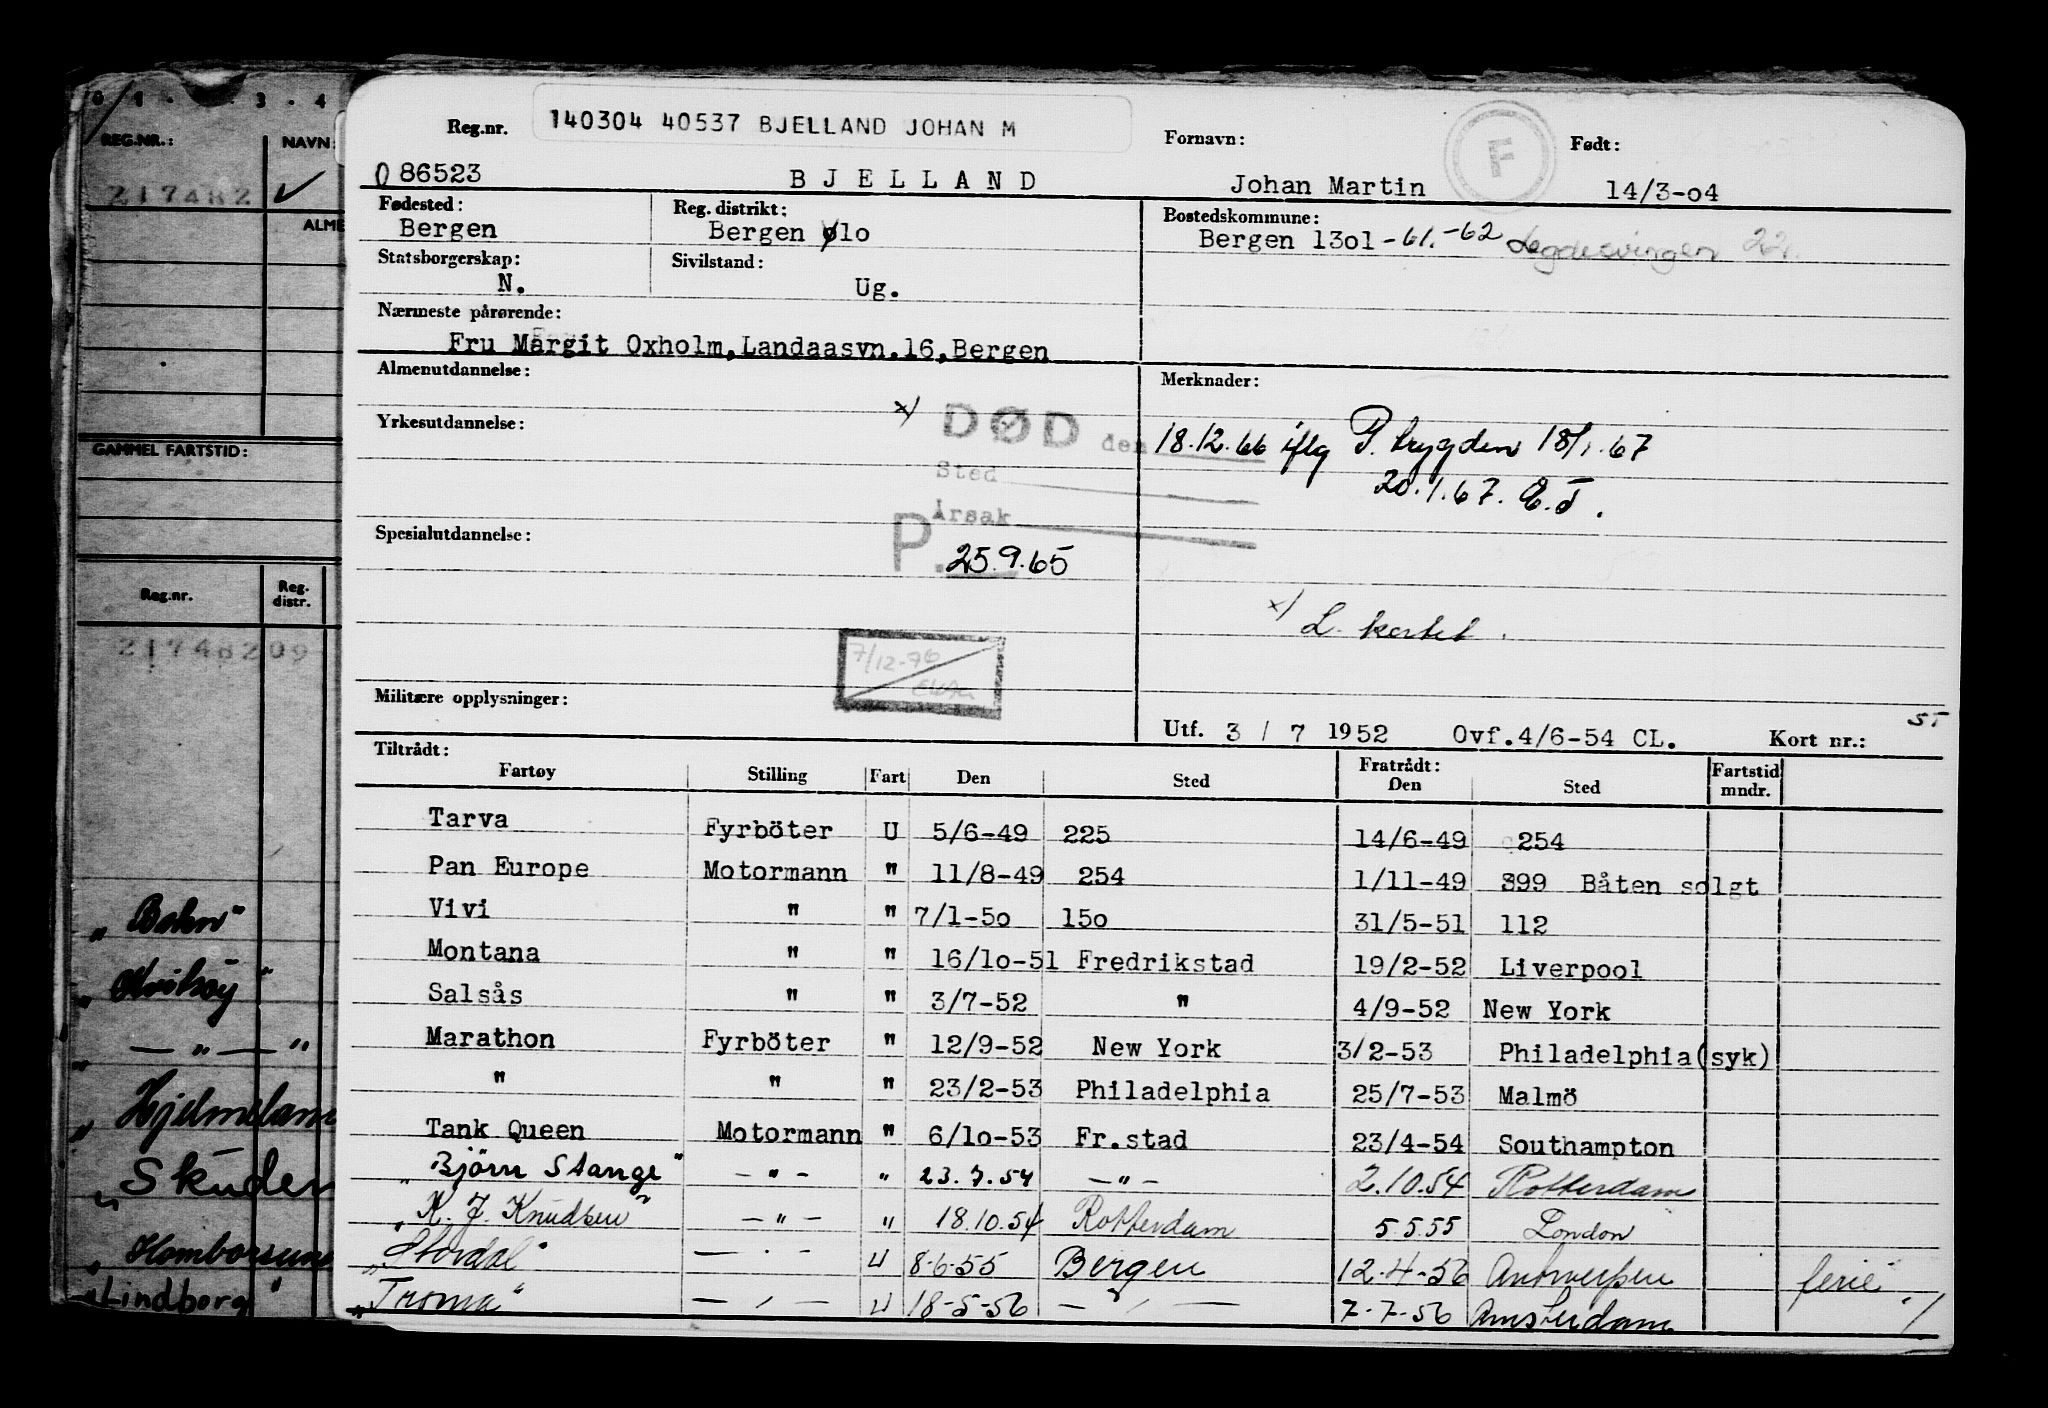 0 1 - 3 - 4
REG.NR.: NAVN:
217482 ✓
ALME
GAMMEL FARTSTID:
Reg.nr. Reg. distr.
21748209
"Hjelmelam
"Skuden
"Lindborg"
Reg.nr. 140304 40537 BJELLAND JOHAN M Fornavn: F Født:
0 86523 BJELLAND Johan Martin 14/3-04
Fødested: Reg. distrikt: Bostedskommune:
Bergen Bergen ølo Bergen 13o1 -61.-62 22.
Statsborgerskap: Sivilstand:
N. Ug.
Nærmeste pårørende:
Fru Margit Oxholm, Landaasvn.16, Bergen
Almenutdannelse: Merknader:
x/ DØD den 18.12.66 iflg P. trygden 18/1.67
Yrkesutdannelse:
Sted 20.1.67. E.T.
Årsak
Spesialutdannelse: P. 25.9.65
x/ L. kortet.
7/12-76
Militære opplysninger:
Utf. 3 / 7 1952 Ovf.4/6-54 CL. Kort nr.: ST
Tiltrådt: Fratrådt:
Fartøy Stilling Fart Den Sted Den Sted Fartstid mndr.
Tarva Fyrböter U 5/6-49 225 14/6-49 254
Pan Europe Motormann " 11/8-49 254 1/11-49 399 Båten solgt
Vivi " " 7/1-5o 15o 31/5-51 112
Montana " " 16/1o-51 Fredrikstad 19/2-52 Liverpool
Salsås " " 3/7-52 " 4/9-52 New York
Marathon Fyrböter " 12/9-52 New York 3/2-53 Philadelphia(syk)
" " " 23/2-53 Philadelphia 25/7-53 Malmö
Tank Queen Motormann " 6/1o-53 Fr.stad 23/4-54 Southampton
"Björn Stange" -"- " 23.7.54 -"- 2.10.54 Rotterdam
"K. J. Knudsen" -"- " 18.10.54 Rotterdam 5 5 55 London
"Stordal" -"- U 8-6-55 Bergen 12-4-56 Antwerpen ferie
"Troma" -"- U 18-5-56 -"- 7-7-56 Amsterdam ./